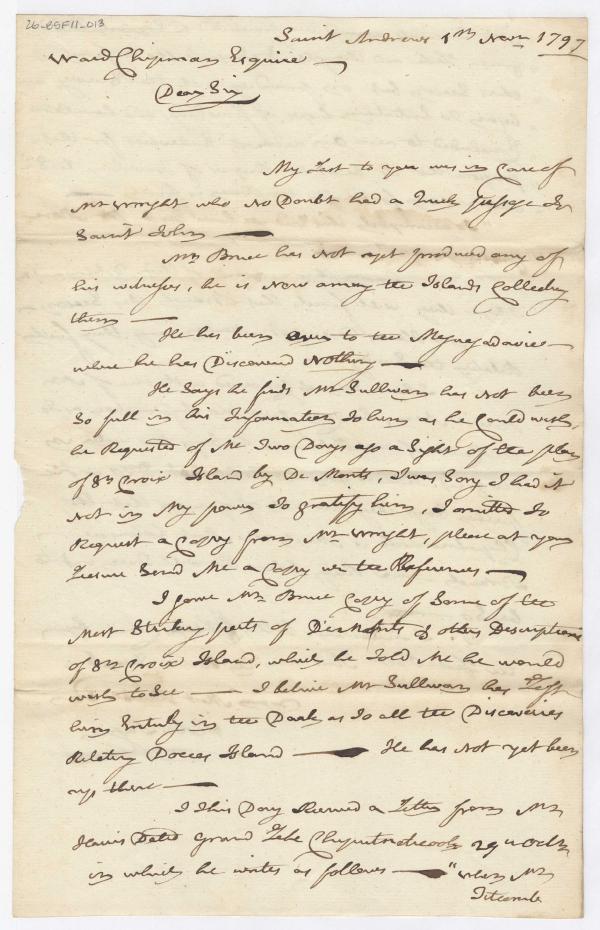 26-85F11-013
Saint Andrews 5th Novr 1797
Ward Chipman Esquire —
Dear Sir
My Last to you was in Care of
Mr Wright who No Doubt had a Quick passage to
Saint John —
Mr Bruce has Not yet produced any of
his witnesses, he is Now among the Islands Collecting
them —
He has been over to the Megugadavic —
where he has Discovered Nothing —
He Says he finds Mr Sullivan has Not been
So full in his Information to him as he Could wish,
he Requested of Me Two Days ago a Sight of the plan
of St Croix Island by De Monts, I was Sory I had it
Not in My power to gratify him, I omitted to
Request a Coppy from Mr Wright, please at your
Leasure Send Me a Copy wt the References —
I gave Mr Bruce Copy of Some of the
Most Striking parts of De Monts & other Descriptions
of St Croix Island, which he Told Me he would
wish to See — I believe Mr Sullivan has Left
him Entirely in the Dark as to all the Discoveries
Relating Doceas Island — He has Not yet been
up there —
I This Day Received a Letter from Mr
Harris Dated Grand Lake 29th Octr
in which he writes as follows — "when Mr
Titcomb